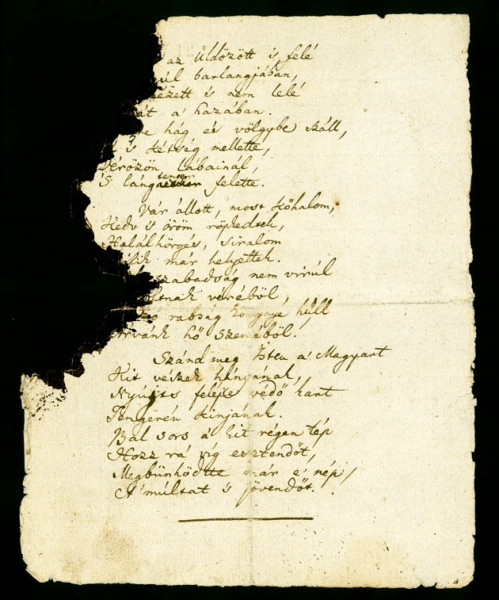 az Üldözött s felé
úl barlangjában,
nézett s nem lelé
át a' hazában.
re hág és völgybe száll,
s kétség mellette,
érözön Lábainál,
S lángtenger felette.
Vár állott, most kőhalom,
Kedv s öröm röpkedtek,
Halálhörgés, siralom
lik már helyettek.
szabadság nem virúl
oltnak véréből,
rabság könnye húll
rvánk hő szeméből!
Szánd meg Isten a' Magyart
Kit vészek hányának,
Nyújts feléje védő kart
Tengerén kínjának.
Bal sors a' kit régen tép
Hozz rá víg esztendőt,
Megbünhödte már e' nép
A' múltat s jövendőt.